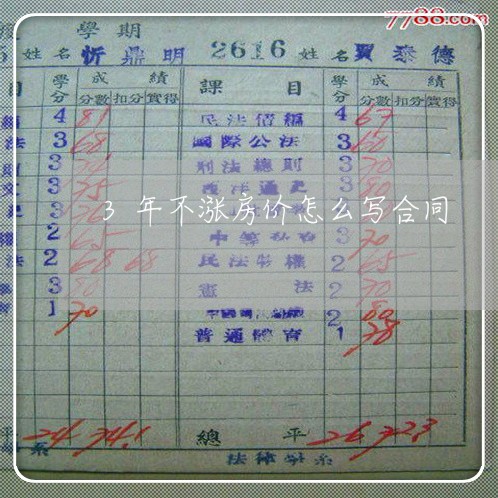 7788.com
學期
姓名 忻鼎明 2616 姓名 賈泰德
目 學分 成績 課目 學分 成績
分數 扣分 實得 分數 扣分 實得
4 81 民法債編 4 67
法 3 68 國際公法 3 60
3 刑法總則 3 70
3 75 3 80
3年不涨房价怎么写合同
2 65 中等 3 70
法 2 68 68 民法物權 2 65
3 80 憲法 2 70
1 70 2 80
普通體育 1 78
平 24 74.1 總平 26 72.3
系 法律學系